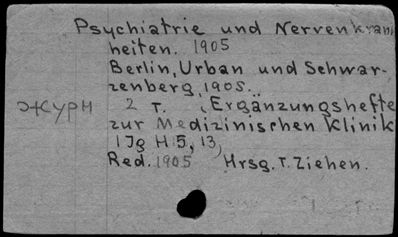 Psychiatrie und Nervenkrank
heiten. 1905
Berlin, Urban und Schwar-
zenberg, 1905..
журн 2 т. (Ergänzungshefte
zur Medizinischen Klinik
1 Jg H 5, 13)
Red. 1905 Hrsg. T. Ziehen.